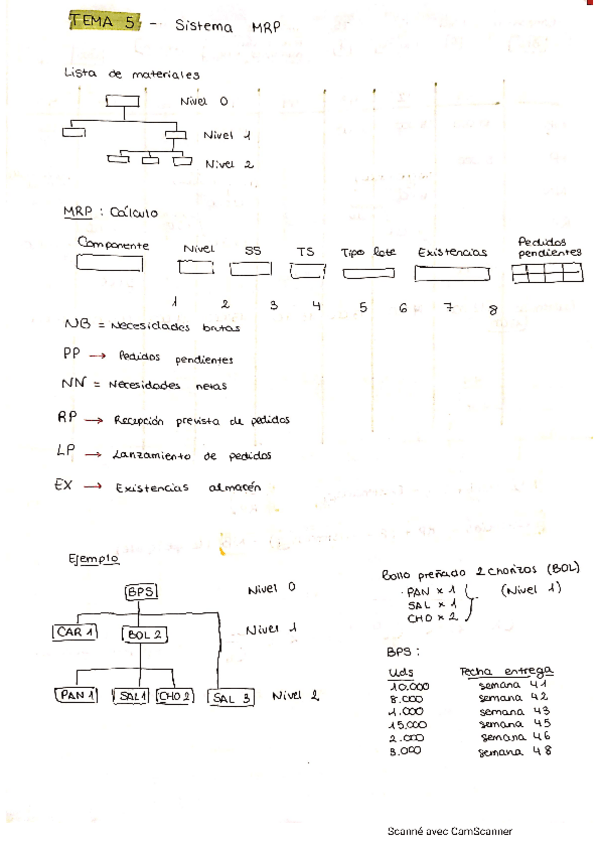 TEMA 5 - Sistema MRP
Lista de materiales
Nivel 0
Nivel 1
Nivel 2
MRP : Cálculo
Componente Nivel SS TS Tipo lote Existencias Pedidos pendientes
1 2 3 4 5 6 7 8
NB = Necesidades brutas
PP → Pedidos pendientes
NN = Necesidades netas
RP → Recepción prevista de pedidos
LP → Lanzamiento de pedidos
EX → Existencias almacén
Ejemplo
BPS Nivel 0
CAR 1 BOL 2 Nivel 1
PAN 1 SAL 1 CHO 2 SAL 3 Nivel 2
Bollo preñado 2 chorizos (BOL)
· PAN x 1 (Nivel 1)
SAL x 1
CHO x 2
BPS :
Uds Fecha entrega
10.000 semana 41
8.000 semana 42
1.000 semana 43
15.000 semana 45
2.000 semana 46
3.000 semana 48
Scanné avec CamScanner